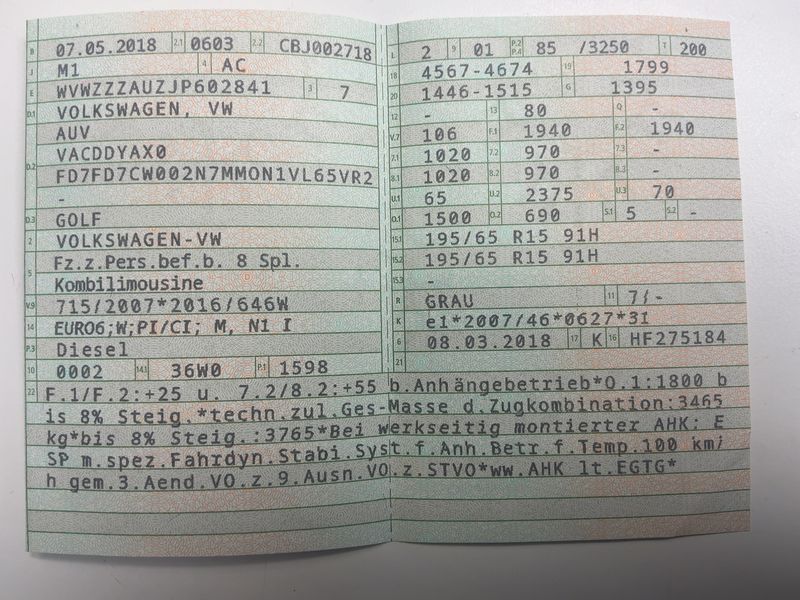 B 07.05.2018 2.1 0603 2.2 CBJ002718
J M1 4 AC
E WVWZZZAUZJP602841 3 7
D.1 VOLKSWAGEN, VW
AUV
VACDDYAX0
D.2 FD7FD7CW002N7MMON1VL65VR2
-
D.3 GOLF
2 VOLKSWAGEN-VW
5 Fz.z.Pers.bef.b. 8 Spl.
Kombilimousine
V.9 715/2007*2016/646W
14 EURO6;W;PI/CI; M, N1 I
P.3 Diesel
10 0002 14.1 36W0 P.1 1598
L 2 9 01 P.2 P.4 85 /3250 T 200
18 4567-4674 19 1799
20 1446-1515 G 1395
12 - 13 80 Q -
V.7 106 F.1 1940 F.2 1940
7.1 1020 7.2 970 7.3 -
8.1 1020 8.2 970 8.3 -
U.1 65 U.2 2375 U.3 70
O.1 1500 O.2 690 S.1 5 S.2 -
15.1 195/65 R15 91H
15.2 195/65 R15 91H
15.3 -
R GRAU 11 7/-
K e1*2007/46*0627*31
6 08.03.2018 17 K 16 HF275184
21
22 F.1/F.2:+25 u. 7.2/8.2:+55 b.Anhängebetrieb*O.1:1800 b
is 8% Steig.*techn.zul.Ges-Masse d.Zugkombination:3465
kg*bis 8% Steig.:3765*Bei werkseitig montierter AHK: E
SP m.spez.Fahrdyn.Stabi.Syst.f.Anh.Betr.f.Temp.100 km/
h gem.3.Aend.VO.z.9.Ausn.VO.z.STVO*ww.AHK lt.EGTG*